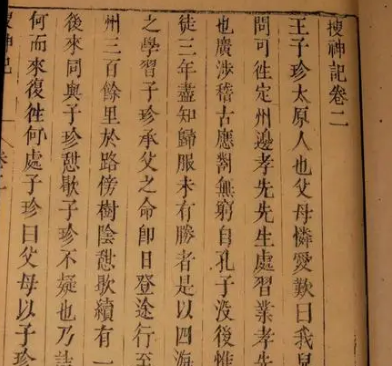 搜神記卷二
王子珍太原人也父母憐愛歎曰我兒
問可徃定州邊孝先先生處習業孝先
也廣涉稽古應對無窮自孔子没後惟
徒三年盡知歸服未有勝者是以四海
之學習子珍承父之命即日登途行至
州三百餘里於路傍樹陰憩歇續有一
後來同與子珍憩歇子珍不疑也乃
何而來復徃何處子珍曰父母以子珍
搜神記